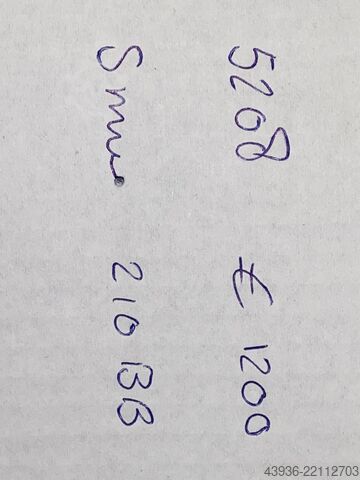 5208 € 1200
210 BB
43936-22112703